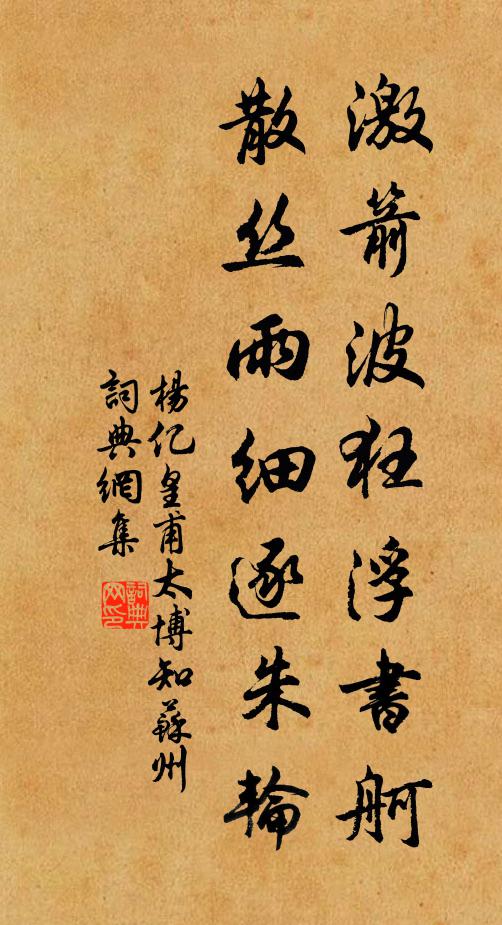 激箭波狂浮書舸
散丝雨細逐朱輪
楊亿皇甫太博知蘇州
詞典網集
詞典網印